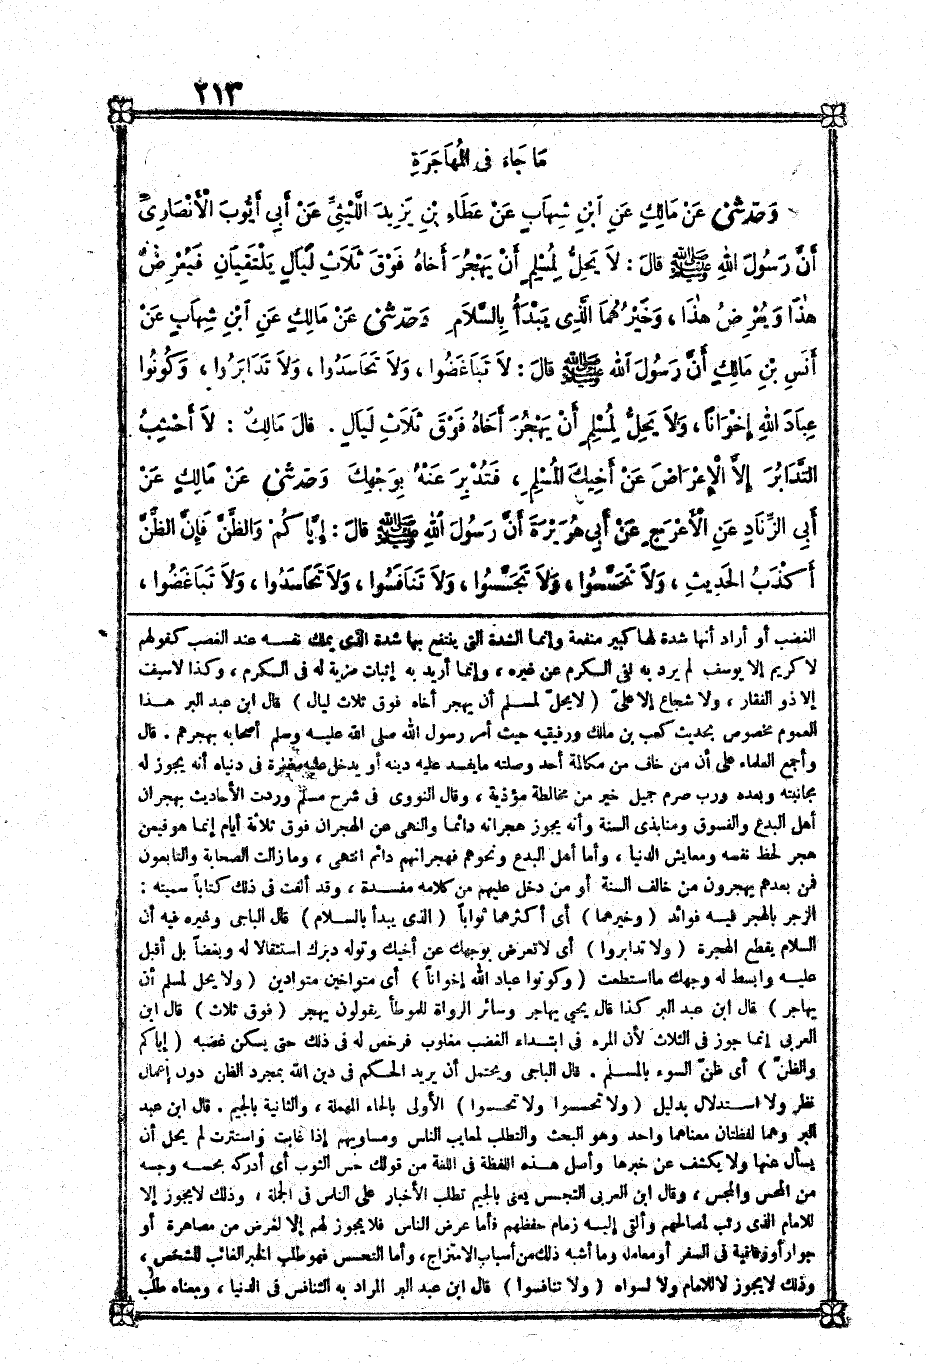 ٢١٣
مَا جَاءَ فِي الْمُهَاجَرَةِ
وَحَدَّثَنِي عَنْ مَالِكٍ عَنِ ابْنِ شِهَابٍ عَنْ عَطَاءِ بْنِ يَزِيدَ اللَّيْثِيِّ عَنْ أَبِي أَيُّوبَ الْأَنْصَارِيِّ
أَنَّ رَسُولَ اللهِ ﷺ قَالَ : لَا يَحِلُّ لِمُسْلِمٍ أَنْ يَهْجُرَ أَخَاهُ فَوْقَ ثَلَاثِ لَيَالٍ يَلْتَقِيَانِ فَيُعْرِضُ
هٰذَا وَيُعْرِضُ هٰذَا ، وَخَيْرُهُمَا الَّذِي يَبْدَأُ بِالسَّلَامِ وَحَدَّثَنِي عَنْ مَالِكٍ عَنِ ابْنِ شِهَابٍ عَنْ
أَنَسِ بْنِ مَالِكٍ أَنَّ رَسُولَ اللهِ ﷺ قَالَ : لَا تَبَاغَضُوا ، وَلَا تَحَاسَدُوا ، وَلَا تَدَابَرُوا ، وَكُونُوا
عِبَادَ اللهِ إِخْوَانًا ، وَلَا يَحِلُّ لِمُسْلِمٍ أَنْ يَهْجُرَ أَخَاهُ فَوْقَ ثَلَاثِ لَيَالٍ . قَالَ مَالِكٌ : لَا أَحْسِبُ
التَّدَابُرَ إِلَّا الْإِعْرَاضَ عَنْ أَخِيكَ الْمُسْلِمِ ، فَتُدْبِرَ عَنْهُ بِوَجْهِكَ وَحَدَّثَنِي عَنْ مَالِكٍ عَنْ
أَبِي الزِّنَادِ عَنِ الْأَعْرَجِ عَنْ أَبِي هُرَيْرَةَ أَنَّ رَسُولَ اللهِ ﷺ قَالَ : إِيَّاكُمْ وَالظَّنَّ فَإِنَّ الظَّنَّ
أَكْذَبُ الْحَدِيثِ ، وَلَا تَحَسَّسُوا ، وَلَا تَجَسَّسُوا ، وَلَا تَنَافَسُوا ، وَلَا تَحَاسَدُوا ، وَلَا تَبَاغَضُوا ،
الغضب أو أراد أنها شدة لها كبير منفعة وإنما الشدة التي ينتفع بها شدة الذى يملك نفسه عند الغصب كقولهم
لا كريم إلا يوسف لم يرد به نفى الكرم عن غيره ، وإنما أريد به إثبات مزية له فى الكرم ، وكذا لاسيف
إلا ذو الفقار ، ولا شجاع إلا علىّ ( لايحلّ لمسلم أن يهجر أخاه فوق ثلاث ليال ) قال ابن عبد البر هذا
العموم مخصوص بحديث كعب بن مالك ورفيقيه حيث أمر رسول الله صلى الله عليه وسلم أصحابه بهجرهم . قال
وأجمع العلماء على أن من خاف من مكالمة أحد وصلته مايفسد عليه دينه أو يدخل عليه مضرة فى دنياه أنه يجوز له
مجانبته وبعده ورب صرم جميل خير من مخالطة مؤذية ، وقال النووى فى شرح مسلم وردت الأحاديث بهجران
أهل البدع والفسوق ومنابذى السنة وأنه يجوز هجرانه دائما والنهى عن الهجران فوق ثلاثة أيام إنما هو فيمن
هجر لحظ نفسه ومعايش الدنيا ، وأما أهل البدع ونحوهم فهجرانهم دائم انتهى ، وما زالت الصحابة والتابعون
فمن بعدهم يهجرون من خالف السنة أو من دخل عليهم من كلامه مفسدة ، وقد ألفت فى ذلك كتاباً سميته :
الزجر بالهجر فيه فوائد ( وخيرهما ) أى أكثرهما ثواباً ( الذى يبدأ بالسلام ) قال الباجى وغيره فيه أن
السلام يقطع الهجرة ( ولا تدابروا ) أى لاتعرض بوجهك عن أخيك وتوله دبرك استثقالا له وبغضاً بل أقبل
عليه وابسط له وجهك مااستطعت ( وكونوا عباد الله إخواناً ) أى متواخين متوادين ( ولا يحل لمسلم أن
يهاجر ) قال ابن عبد البر كذا قال يحيى يهاجر وسائر الرواة للموطأ يقولون يهجر ( فوق ثلاث ) قال ابن
العربى إنما جوز فى الثلاث لأن المرء فى ابتداء الغضب مغلوب فرخص له فى ذلك حتى يسكن غضبه ( إياكم
والظنّ ) أى ظنّ السوء بالمسلم . قال الباجى ويحتمل أن يريد الحكم فى دين الله بمجرد الظن دون إعمال
نظر ولا استدلال بدليل ( ولا تحسسوا ولا تجسسوا ) الأولى بالحاء المهملة ، والثانية بالجيم . قال ابن عبد
البر وهما لفظتان معناهما واحد وهو البحث والتطلب لمعايب الناس ومساويهم إذا غابت واستترت لم يحل أن
يسأل عنها ولا يكشف عن خبرها وأصل هذه اللفظة فى اللغة من قولك حس الثوب أى أدركه بحسه وجسه
من المحس والمجس ، وقال ابن العربى التجسس يعنى بالجيم تطلب الأخبار على الناس فى الجملة ، وذلك لايجوز إلا
للامام الذى رتب لمصالحهم وألقى إليه زمام حفظهم فأما عرض الناس فلايجوز لهم إلا لغرض من مصاهرة أو
جوار أورفاقة فى السفر أومعاملة وما أشبه ذلك من أسباب الامتزاج ، وأما التحسس فهو طلب الخبر الغائب للشخص ،
وذلك لايجوز لاللامام ولا لسواه ( ولا تنافسوا ) قال ابن عبد البر المراد به التنافس فى الدنيا ، ومعناه طلب